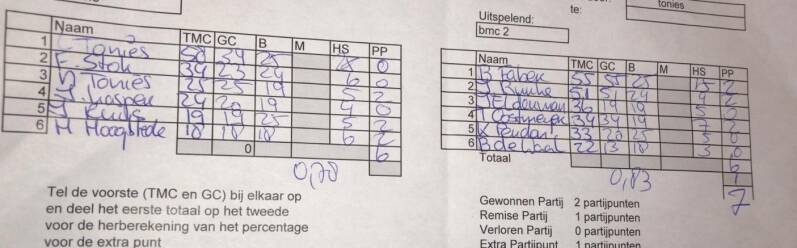 te:
tonies
Uitspelend:
bmc 2
Naam TMC GC B M HS PP
1 Tonies 50 34 25 0
2 F. Stok 34 23 24 6 0
3 Tonies 25 25 19 5 2
4 24 20 19 4 0
5 19 19 25 5 2
6 M Hoogstede 18 18 18 6 2
0 6
0,78
Naam TMC GC B M HS PP
1 B Faber 55 55 25 15 2
2 51 51 24 4 2
3 36 19 19 5 0
4 T Oostmeyer 34 34 19 3 2
5 33 20 25 5 0
6 B de Waal 22 13 18 3 0
Totaal 6
1
0,83 7
Tel de voorste (TMC en GC) bij elkaar op
en deel het eerste totaal op het tweede
voor de herberekening van het percentage
voor de extra punt
Gewonnen Partij 2 partijpunten
Remise Partij 1 partijpunten
Verloren Partij 0 partijpunten
Extra Partijpunt 1 partijpunten